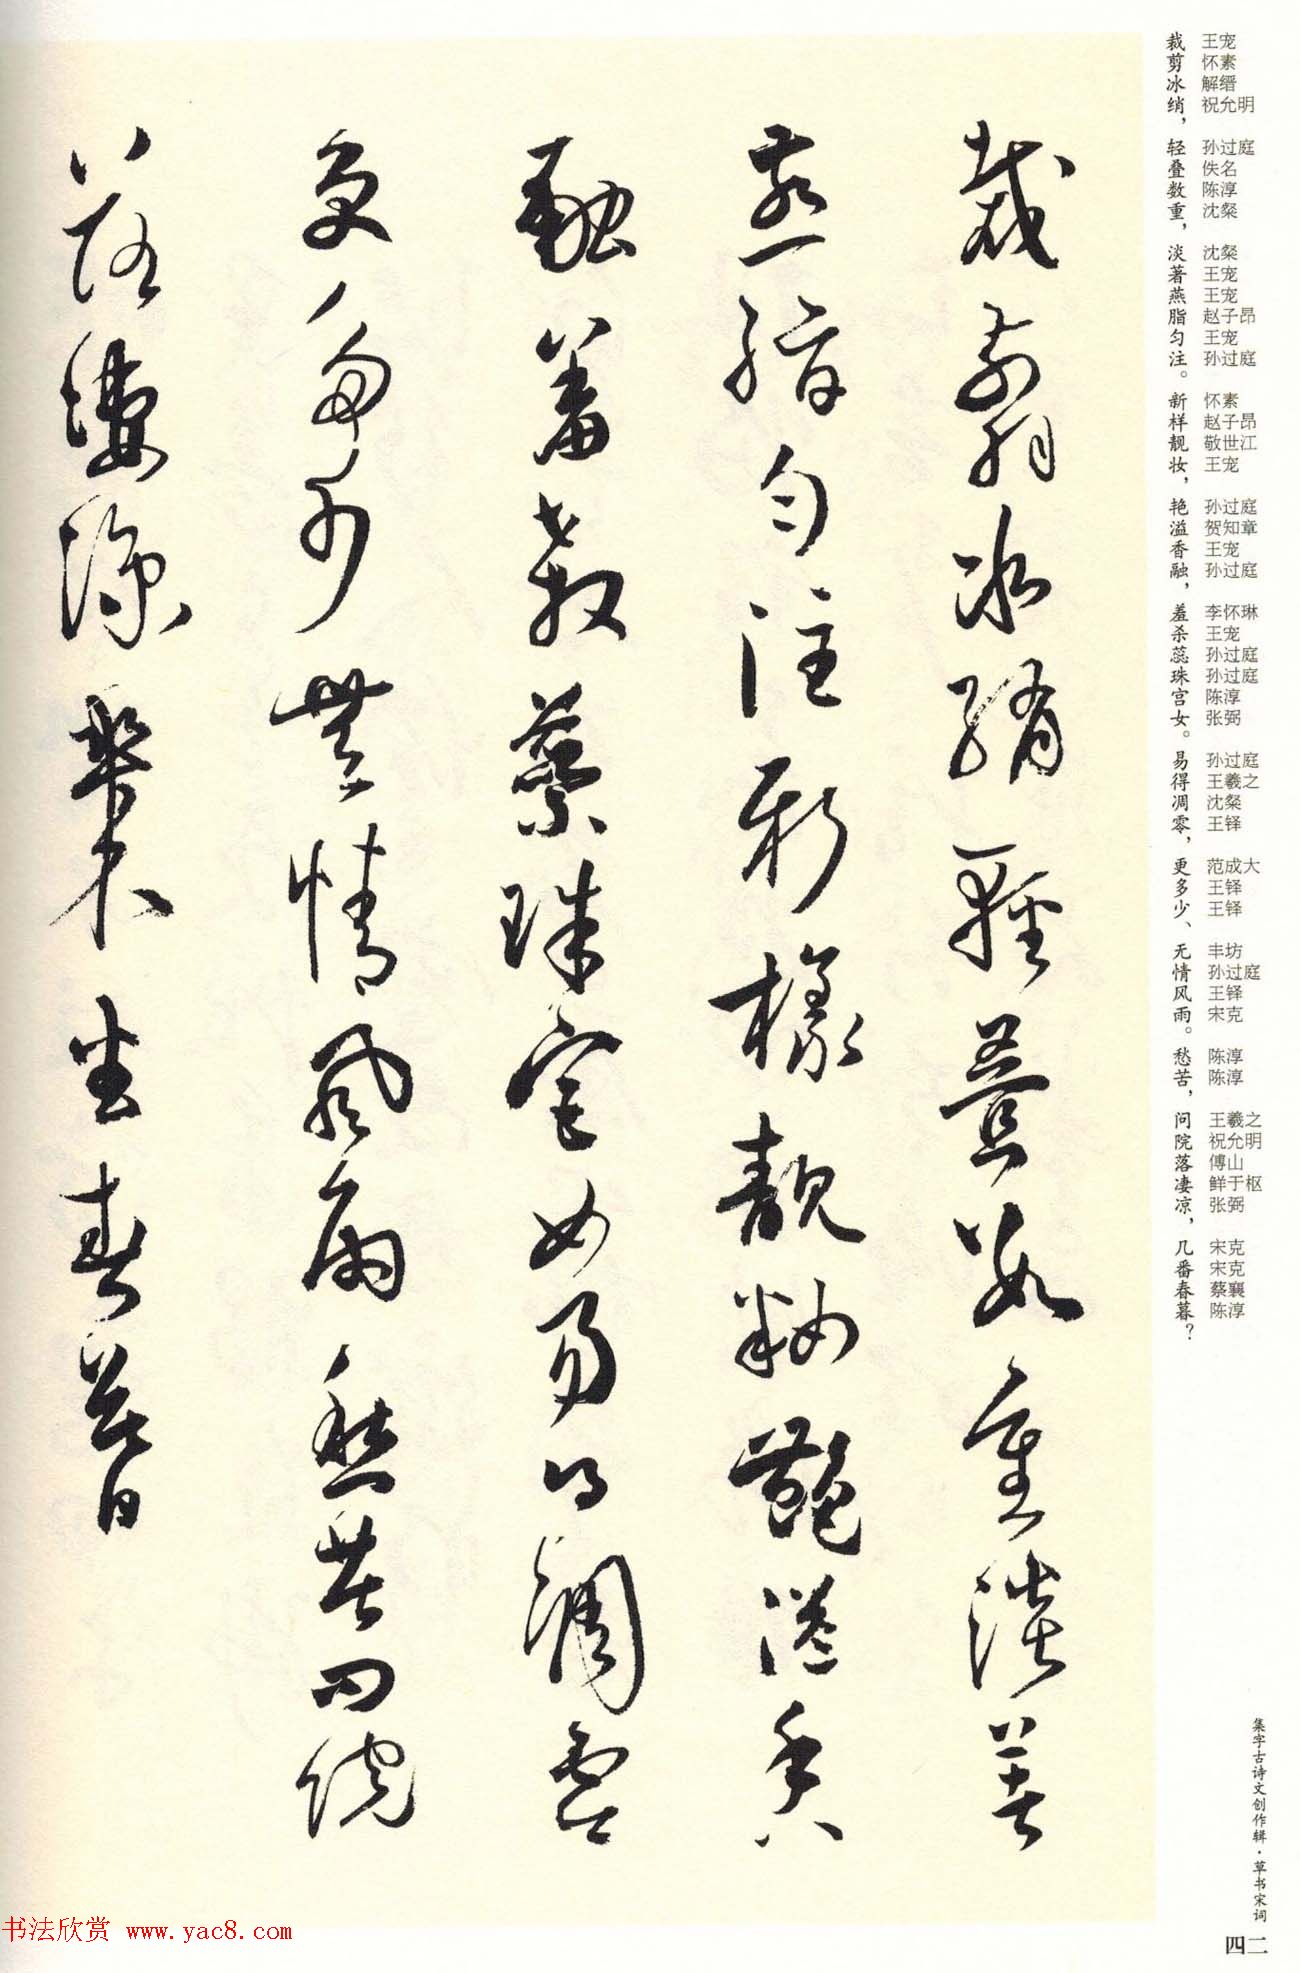 裁剪冰绡轻叠数重淡著
燕脂匀注新样靓妆艳溢香
融羞杀蕊珠宫女易得凋零
更多少无情风雨愁苦问院
落凄凉几番春暮
裁剪冰绡，轻叠数重，淡著燕脂匀注。新样靓妆，艳溢香融，羞杀蕊珠宫女。易得凋零，更多少、无情风雨。愁苦，问院落凄凉，几番春暮？
王宠 怀素 解缙 祝允明 孙过庭 佚名 陈淳 沈粲 沈粲 王宠 王宠 赵子昂 王宠 孙过庭 怀素 赵子昂 敬世江 王宠 孙过庭 贺知章 王宠 孙过庭 李怀琳 王宠 孙过庭 孙过庭 陈淳 张弼 孙过庭 王羲之 沈粲 王铎 范成大 王铎 王铎 丰坊 孙过庭 王铎 宋克 陈淳 陈淳 王羲之 祝允明 傅山 鲜于枢 张弼 宋克 宋克 蔡襄 陈淳
集字古诗文创作辑·草书宋词
四二
书法欣赏 www.yac8.com